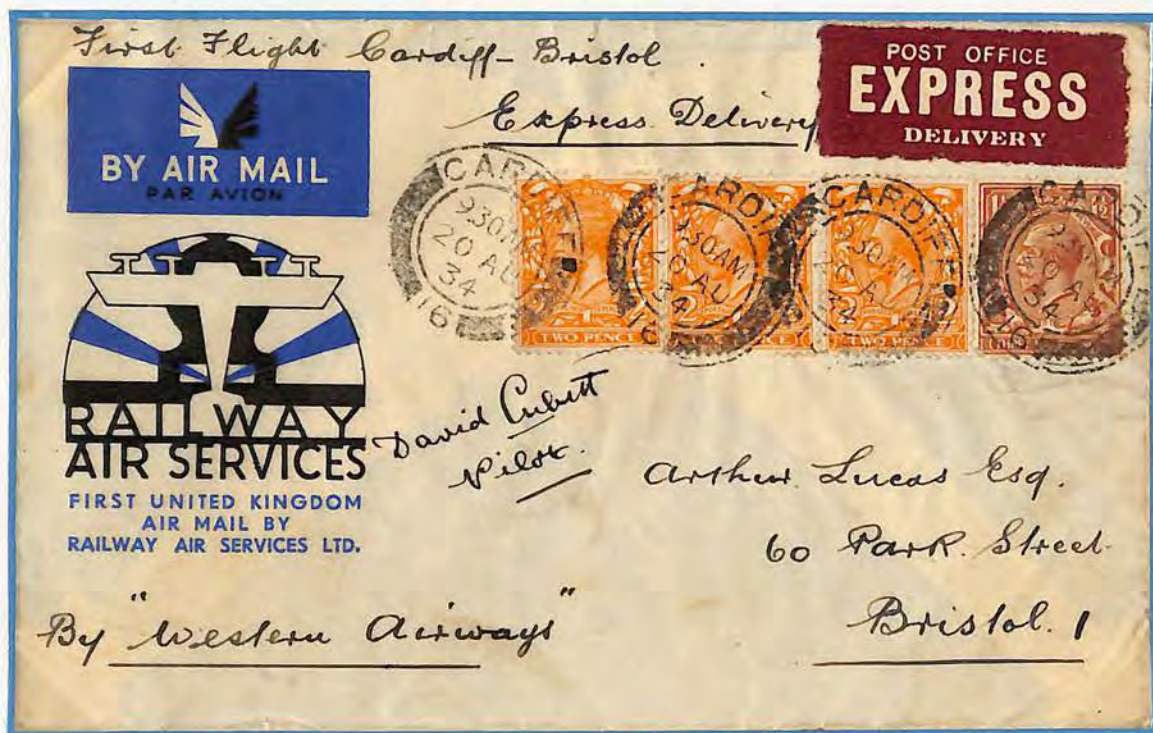 First Flight Cardiff - Bristol.
Express Delivery
POST OFFICE
EXPRESS
DELIVERY
BY AIR MAIL
PAR AVION
CARDIFF
930AM
20 AU
34
16
CARDIFF
930AM
20 AU
34
16
CARDIFF
930AM
20 AU
34
CARDIFF
20 AU
34
16
TWO PENCE
TWO PENCE
RAILWAY
AIR SERVICES
FIRST UNITED KINGDOM
AIR MAIL BY
RAILWAY AIR SERVICES LTD.
David Cubitt
Pilot.
Arthur Lucas Esq.
60 Park. Street.
Bristol. 1
By "Western Airways"